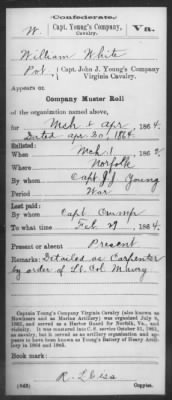 Confederate.
W. Capt. Young's Company, Cavalry, Va.
William White
Pvt., Capt. John J. Young's Company Virginia Cavalry.
Appears on
Company Muster Roll
of the organization named above,
for Mch & Apr, 1864.
Dated Apr. 30, 1864
Enlisted:
When Mch. 1, 1862.
Where Norfolk
By whom Capt J. J. Young
Period War
Last paid:
By whom Capt Crump
To what time Feb 29, 1864.
Present or absent Present
Remarks: Detailed as Carpenter
by order of Lt. Col Maury
Captain Young's Company Virginia Cavalry (also known as
Howitzers and as Marine Artillery) was organized July 8,
1861, and served as a Harbor Guard for Norfolk, Va., and
vicinity. It was mustered into C. S. service October 21, 1861,
as cavalry, but it served as an artillery organization and ap-
pears to have been known as Young's Battery of Heavy Artil-
lery in 1864 and 1865.
Book mark:
(642)
Copyist.